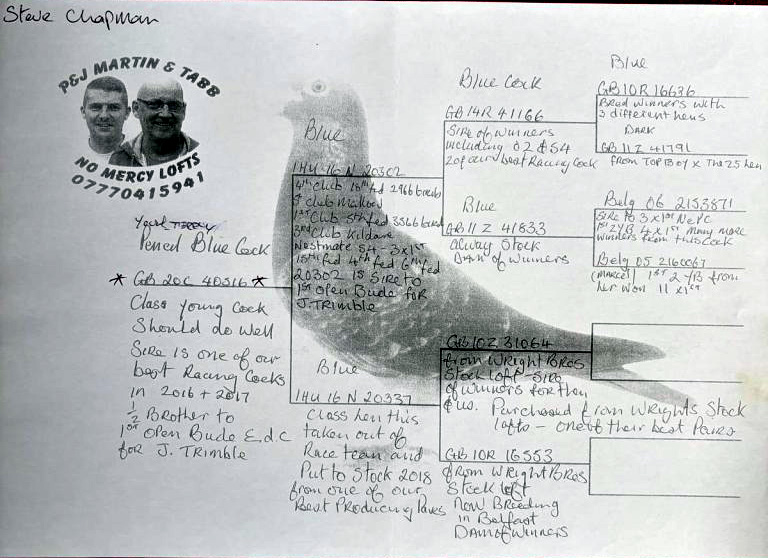 Steve Chapman
P&J MARTIN & TABB
NO MERCY LOFTS
07770415941
Pened Blue Cock
* GB 20C 40516 *
Class young Cock
Should do well
Sire is one of our
best Racing Cocks
in 2016 + 2017
½ Brother to
1st Open Bude E.d.c
for J. Trimble
Blue
IHU 16 N 20302
4th Club 18th fed 2966 birds
1st Club 5th fed 3366 birds
3rd Club Kildare
Nestmate 54 - 3x1st
15th fed 4th fed 6th fed
20302 is Sire to
1st Open Bude for
J. Trimble
Blue
IHU 16 N 20337
Class hen this
taken out of
Race team and
Put to Stock 2018
from one of our
Best Producing Paires
Blue Cock
GB 14R 41166
Sire of winners
including 02 & 54
2 of our best Racing Cock
Blue
GB 11 Z 41833
Alway Stock
Dam of winners
GB 10Z 31064
from WRight BROS
Stock Loft - Sire
of winners for then
& us. Purchased from WRights Stock
lofts - one of their best Pairs
GB 10R 16553
from WRight BROS
Stock loft
Now Breeding
in Belfast
Dam of winners
Blue
GB 10R 16636
Bred winners with
3 different hens
Dark
GB 11 Z 41791
from TOP 13 04 x The 25 hen
Belg 06 2153871
Sire to 3 x 1st NePC
1st 2YB 4 x 1st Many more
winners from this Cock
Belg 05 2160067
(Marcel) 1st 2 YB from
her won 11 x 1st